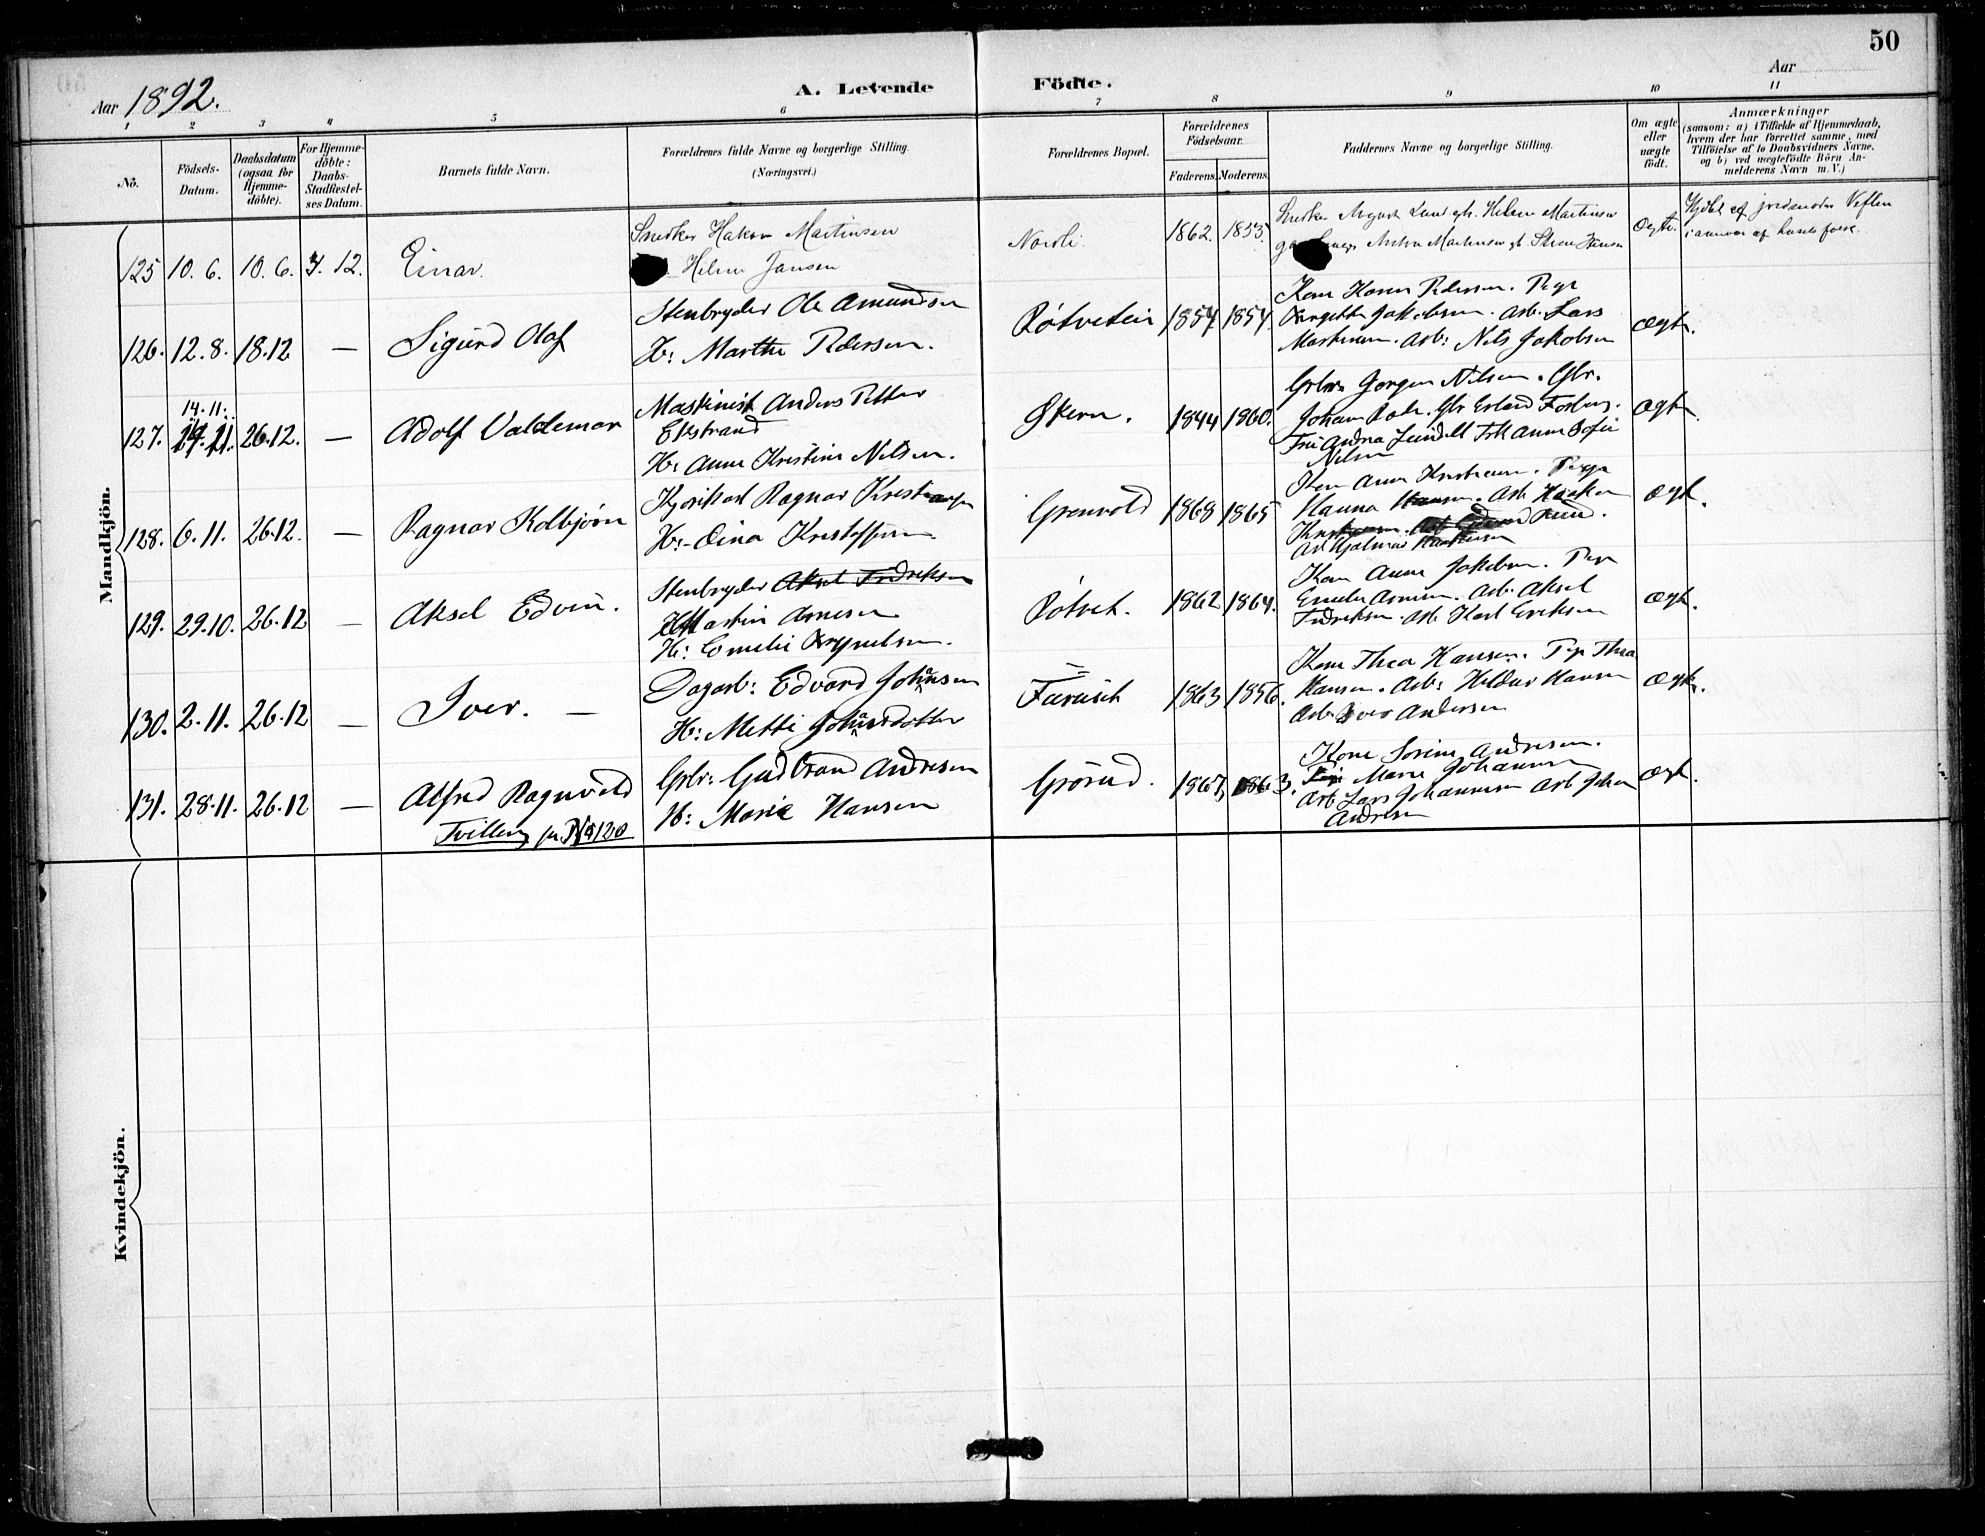 50
Aar 1892.
A. Levende Födte.
Aar
1 2 3 4 5 6 7 8 9 10 11
Nö.
Födsels-Datum.
Daabsdatum (ogsaa for Hjemme-döbte).
For Hjemme-döbte: Daabs-Stadfæstel-ses Datum.
Barnets fulde Navn.
Forældrenes fulde Navne og borgerlige Stilling. (Næringsvei.)
Forældrenes Bopæl.
Forældrenes Födselsaar.
Faderens. Moderens.
Faddernes Navne og borgerlige Stilling.
Om ægte eller uægte født.
Anmærkninger
(saasom: a) i Tilfælde af Hjemmedaab,
hvem der har forrettet samme, med
Tilföielse af to Daabsvidners Navne.
og b) ved uægtefödte Börn An-
melderens Navn m. V.)
Mandkjön.
Snedker Hakon Martinsen
125 10. 6. 10. 6. 4. 12. Einar.
Hilma Jansen
Nordli. 1862. 1853.
Snedker August Lund gh. Hilma Martinsen
Anton Martinsen
Ægte.
Hjdbt af jordmoder Veflen
Stenbryder Ole Amundsen
126. 12. 8. 18.12 — Sigurd Olaf
H: Marthe Pedersen.
Rötvetein 1854 1854
Kone Karen Pedersen. Pige
Jakobsen. Arb. Lars
Martinsen. Arb: Nils Jakobsen
Ægte.
14. 11.
127. 26.12. — Adolf Valdemar
Maskinist Anders Petter
Ekstrand
H: Anna Kristine Nilsen.
Økern. 1844 1860.
Grbr. Jørgen Nilsen. Gbr.
Johan Gbr Erland Fosberg.
Fru Andrea Frk Anna Sofie
Nilsen
Ægte.
128. 6. 11. 26.12. — Ragnar Kolbjörn
Ragnar Kristiansen
H: Dina Kristoffersen
Grønvold 1868 1865
Kone Anna Kristiansen. Pige
Hanna Arb. Haakon
Arb Hjalmar
Ægt.
129. 29.10. 26.12 — Aksel Edvin.
Stenbryder Aksel Fredriksen
Martin Arnesen
H: Emelie Brynelsen.
Rötvet. 1862 1864.
Kone Anna Jakobsen. Pige
Emelie Arnesen. Arb. Aksel
Fredriksen. Arb Karl Eriksen
Ægt.
130. 2. 11. 26.12 — Iver. —
Dagarb: Edvard Johansen
H: Mette Johansdatter
Furuset 1863 1856.
Kone Thea Hansen. Pige Thea
Hansen. Arb: Hildur Hansen
Arb Iver Andersen
Ægt.
131. 28.11. 26.12 — Alfred Ragnvald
Tvilling jfr. No 120
Grbr: Gudbrand Andresen
H: Marie Hansen
Grörud. 1867, 1863.
Kone Sorine Andresen.
Pige Marie Johannesen
Arb Lars Johannesen Arb Johan
Andresen
Ægt.
Kvindekjön.